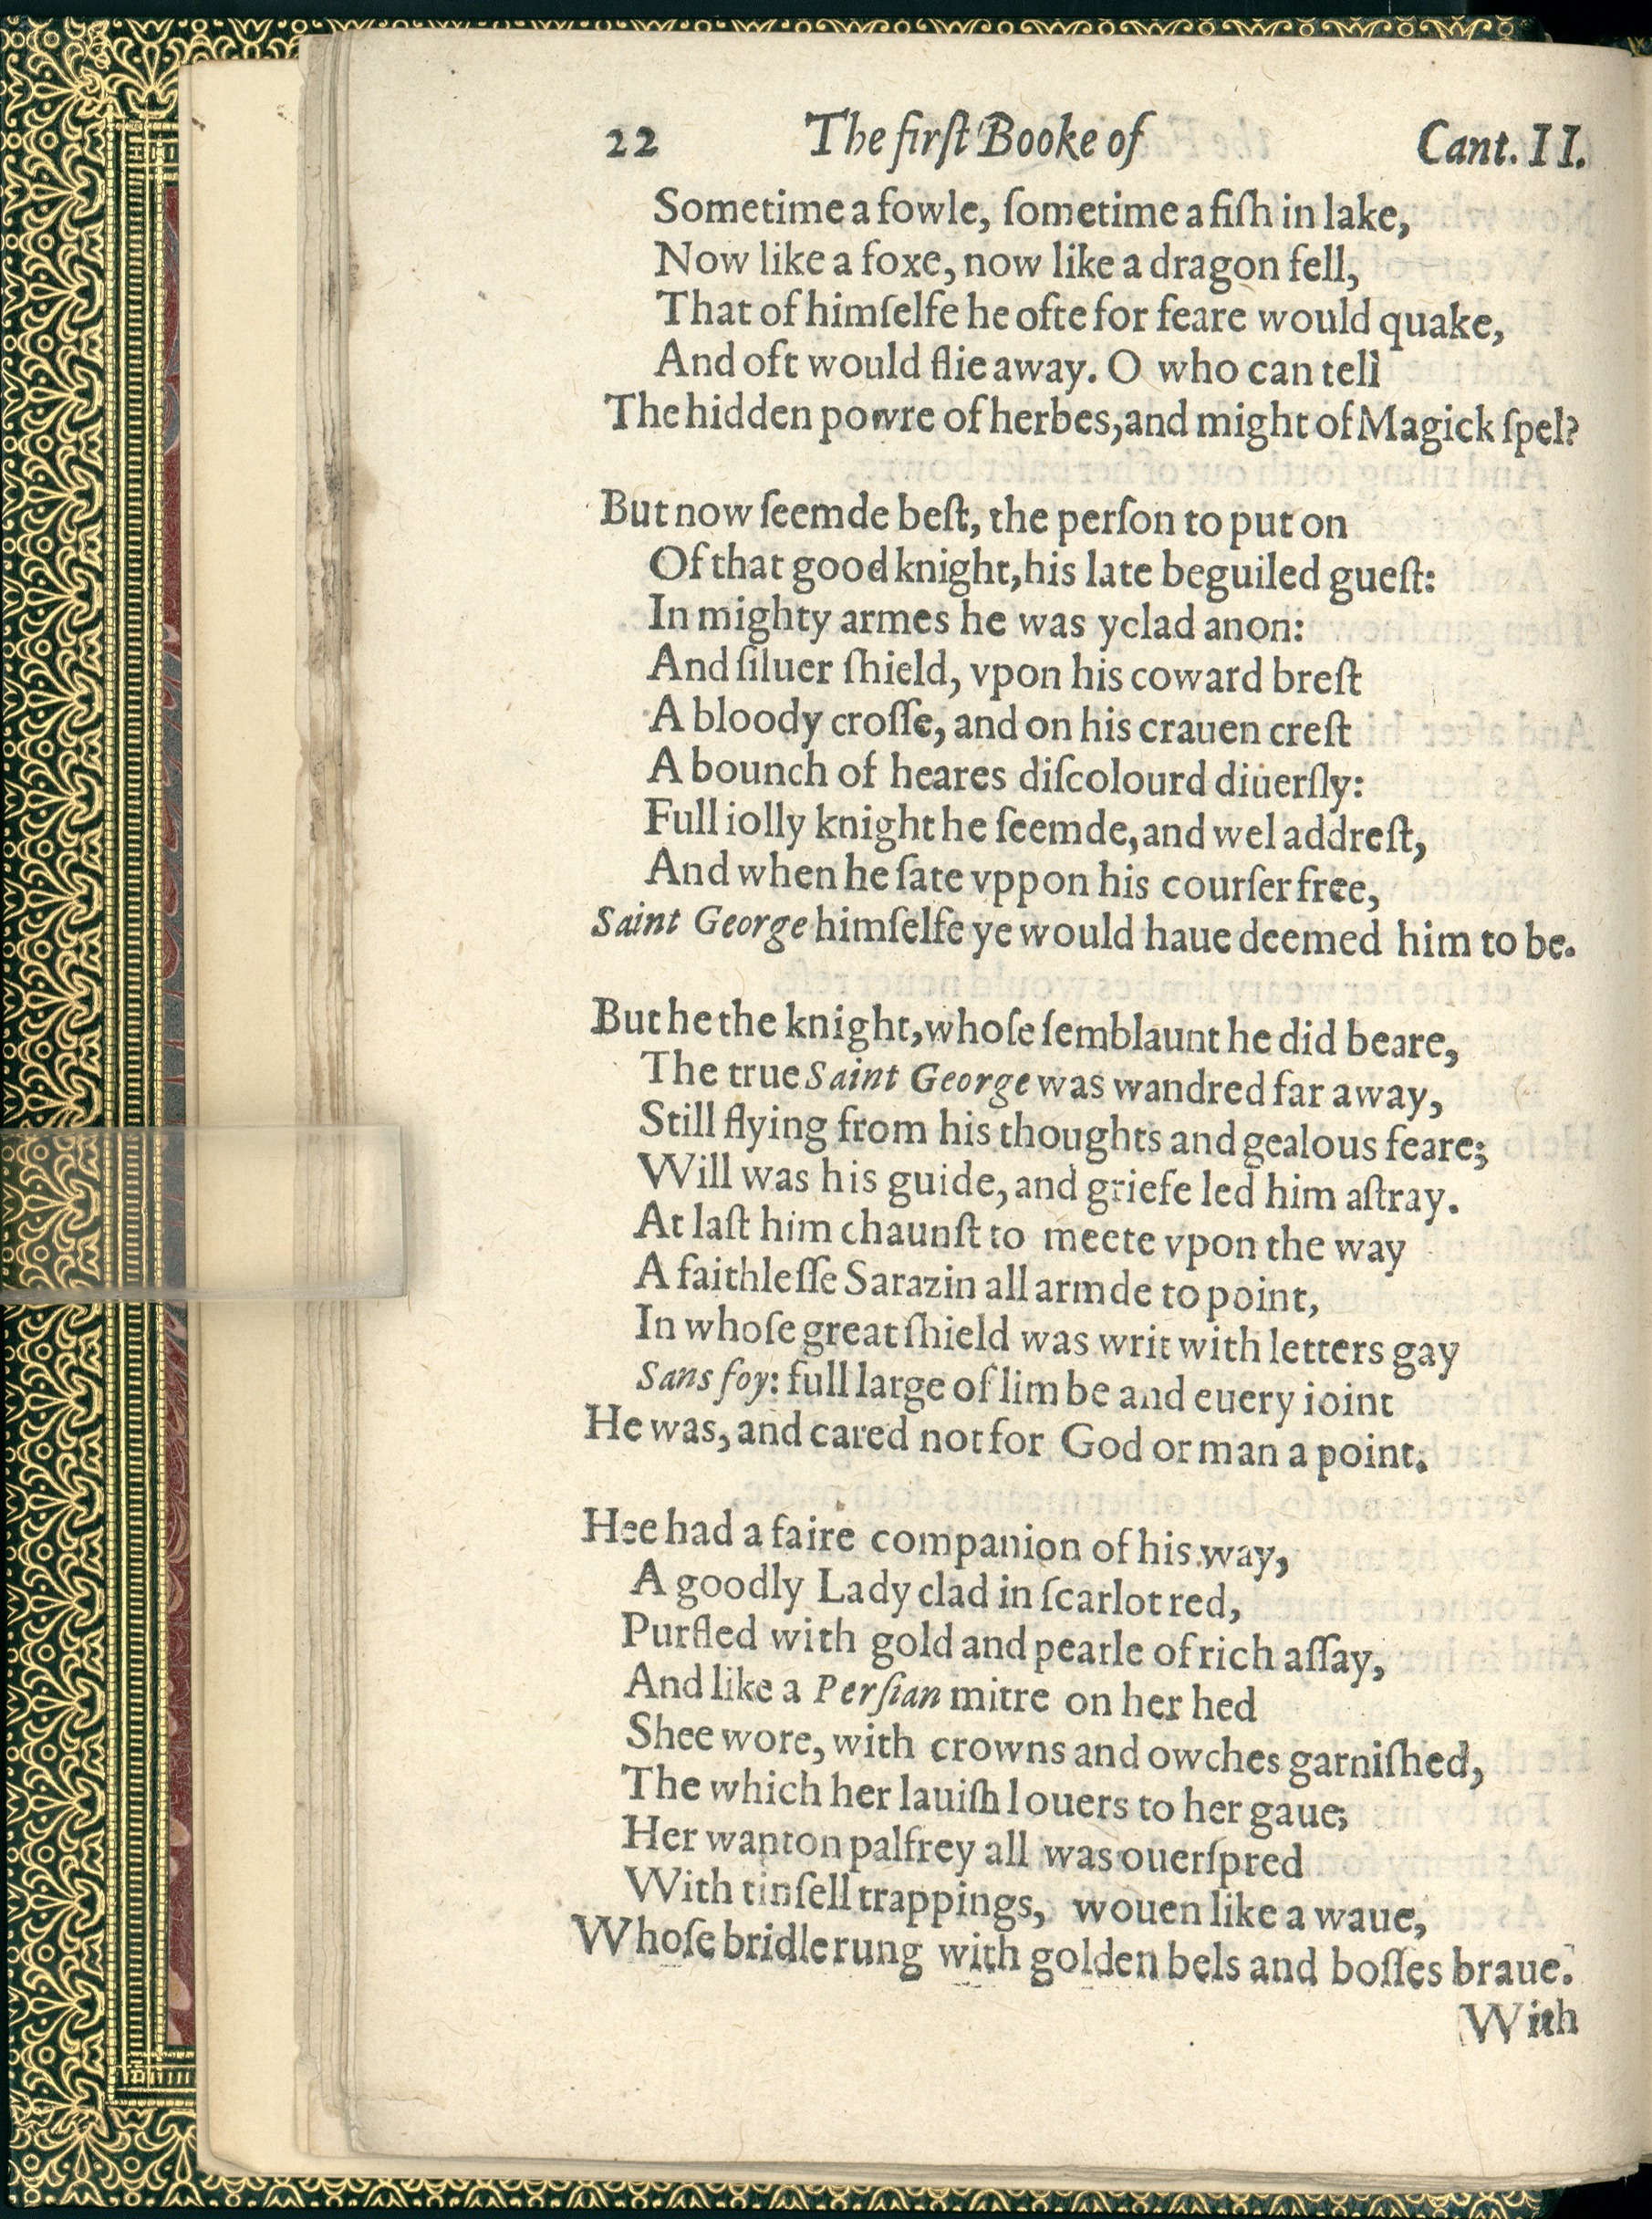 22 The firſt Booke of Cant. II.
Sometime a fowle, ſometime a fiſh in lake,
Now like a foxe, now like a dragon fell,
That of himſelfe he ofte for feare would quake,
And oft would flie away. O who can tell
The hidden powre of herbes, and might of Magick ſpel?
But now ſeemde beſt, the perſon to put on
Of that good knight, his late beguiled gueſt:
In mighty armes he was yclad anon:
And ſiluer ſhield, vpon his coward breſt
A bloody croſſe, and on his crauen creſt
A bounch of heares diſcolourd diuerſly:
Full iolly knight he ſeemde, and wel addreſt,
And when he ſate vppon his courſer free,
Saint George himſelfe ye would haue deemed him to be.
But he the knight, whoſe ſemblaunt he did beare,
The true Saint George was wandred far away,
Still flying from his thoughts and gealous feare;
Will was his guide, and griefe led him aſtray.
At laſt him chaunſt to meete vpon the way
A faithleſſe Sarazin all armde to point,
In whoſe great ſhield was writ with letters gay
Sans foy: full large of limbe and euery ioint
He was, and cared not for God or man a point.
Hee had a faire companion of his way,
A goodly Lady clad in ſcarlot red,
Purfled with gold and pearle of rich aſſay,
And like a Perſian mitre on her hed
Shee wore, with crowns and owches garniſhed,
The which her lauiſh louers to her gaue;
Her wanton palfrey all was ouerſpred
With tinſell trappings, wouen like a waue,
Whoſe bridle rung with golden bels and boſſes braue.
With